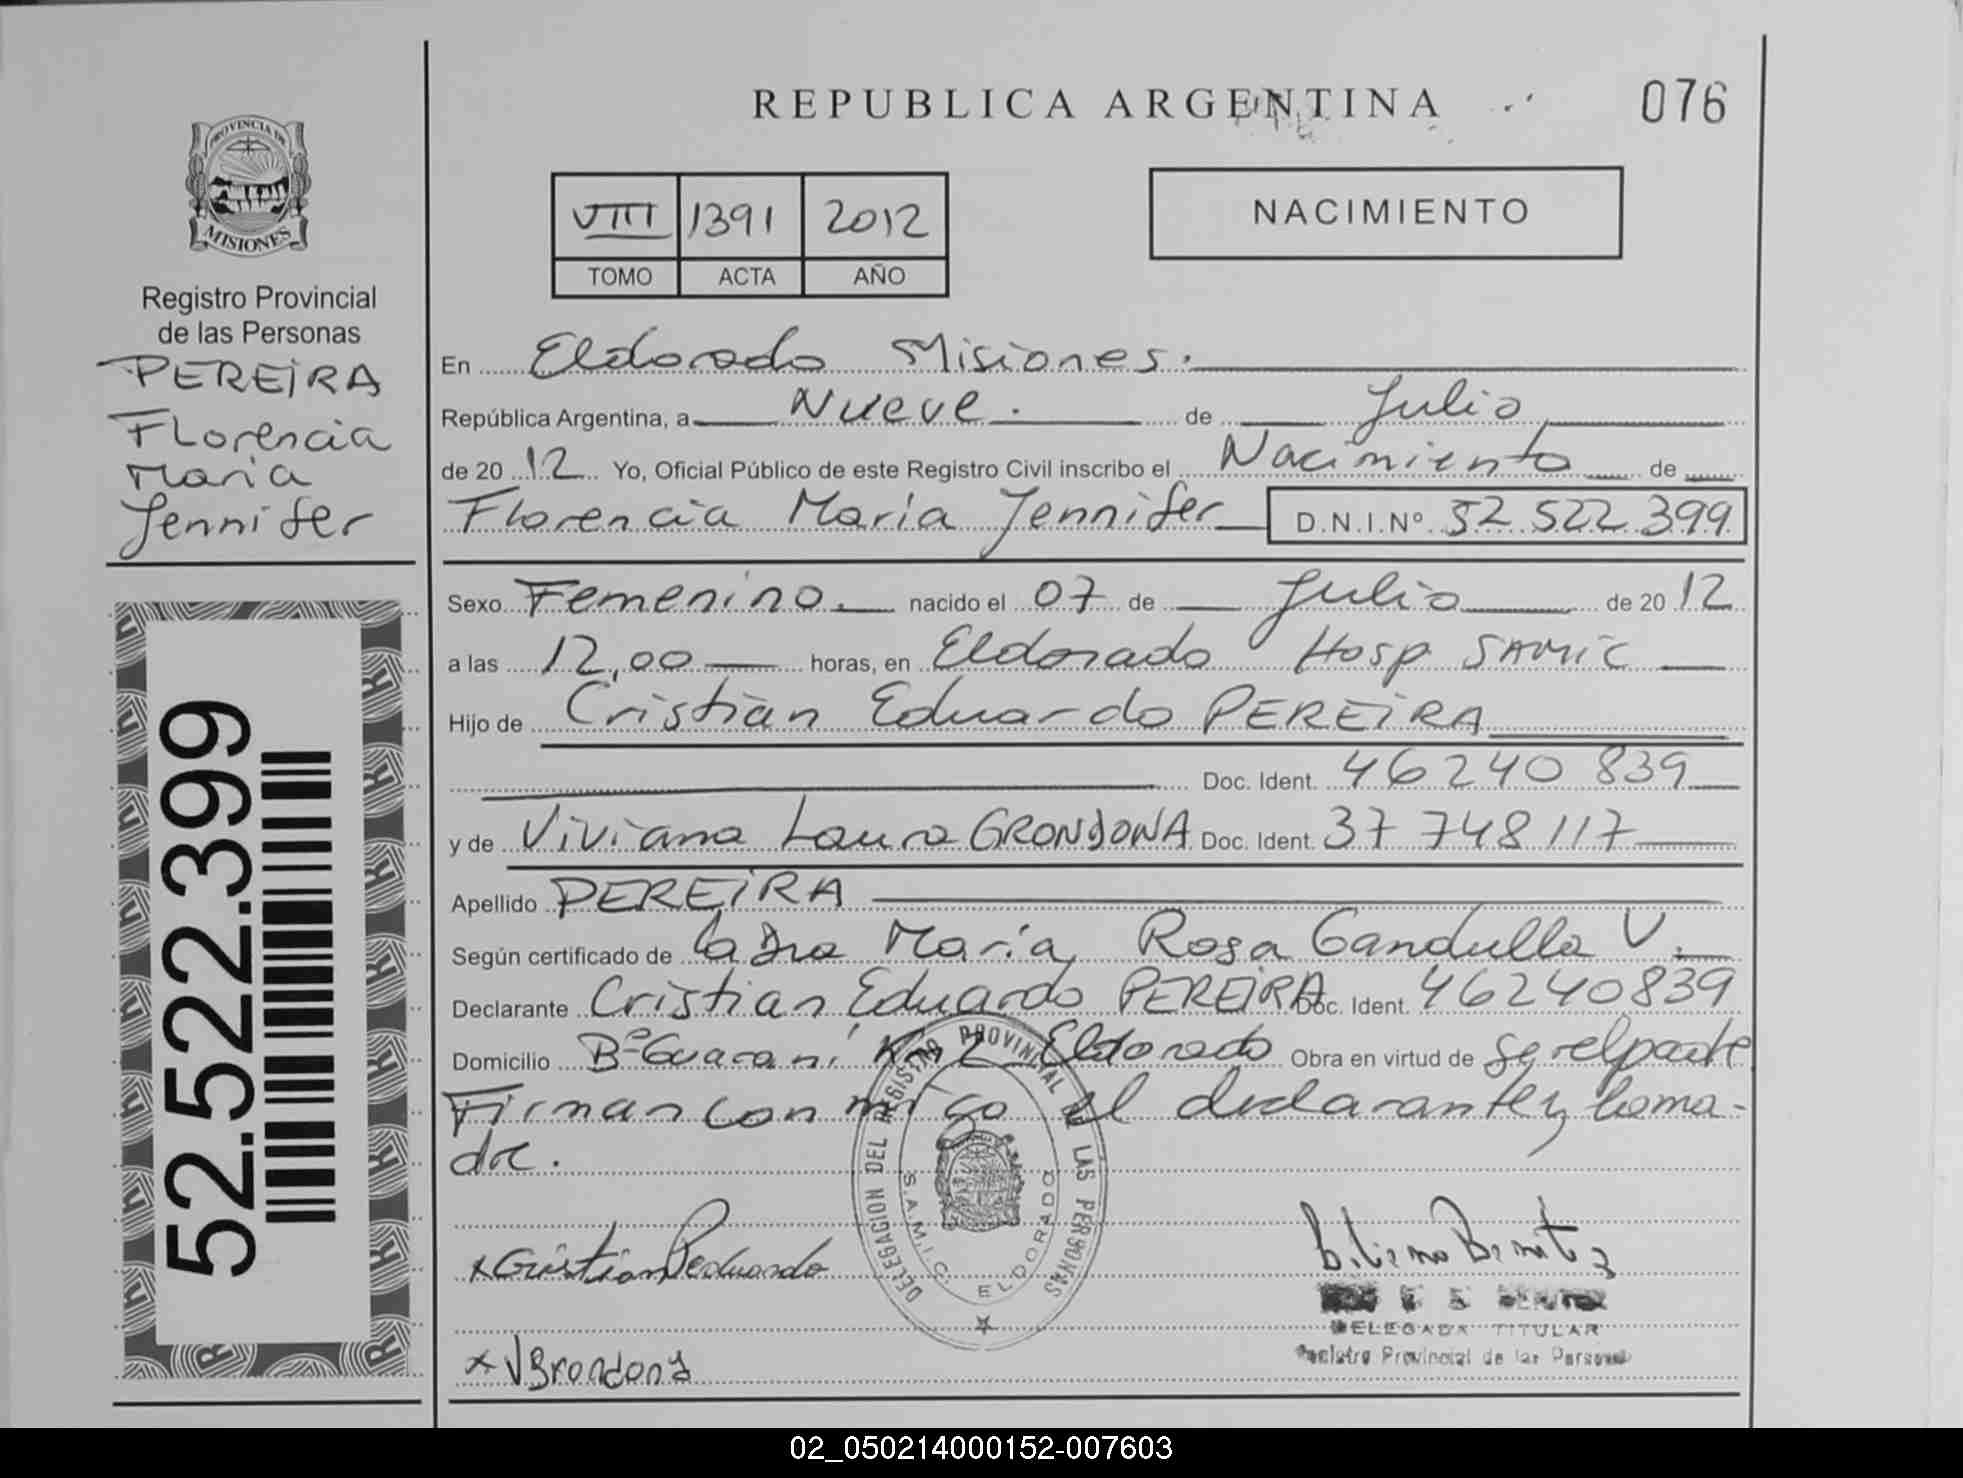 REPUBLICA ARGENTINA
076
PROVINCIA DE
MISIONES
Registro Provincial
de las Personas
PEREIRA
Florencia
Maria
Jennifer
52.522.399
VIII 1391 2012
TOMO ACTA AÑO
NACIMIENTO
En Eldorado Misiones.
República Argentina, a Nueve. de Julio
de 20 12 Yo, Oficial Público de este Registro Civil inscribo el Nacimiento de
Florencia María Jennifer D.N.I.Nº 52 522 399
Sexo Femenino. nacido el 07 de Julio de 20 12
a las 12,00 horas, en Eldorado Hosp SAMIC
Hijo de Cristian Eduardo PEREIRA
Doc. Ident. 46240839
y de Viviana Laura GRONDONA Doc. Ident. 37 748 117
Apellido PEREIRA
Según certificado de la Dra María Rosa Gandulla V.
Declarante Cristian Eduardo PEREIRA Doc. Ident. 46240839
Domicilio Bº Guaraní Km 2 Eldorado Obra en virtud de ser el padre
Firman con migo el declarante y la ma-
dre.
DELEGACION DEL REGISTRO PROVINCIAL DE LAS PERSONAS
S.A.M.I.C. ELDORADO
x Cristian Peduardo
DELEGADA TITULAR
Registro Provincial de las Personas
x VGrondona
02_050214000152-007603